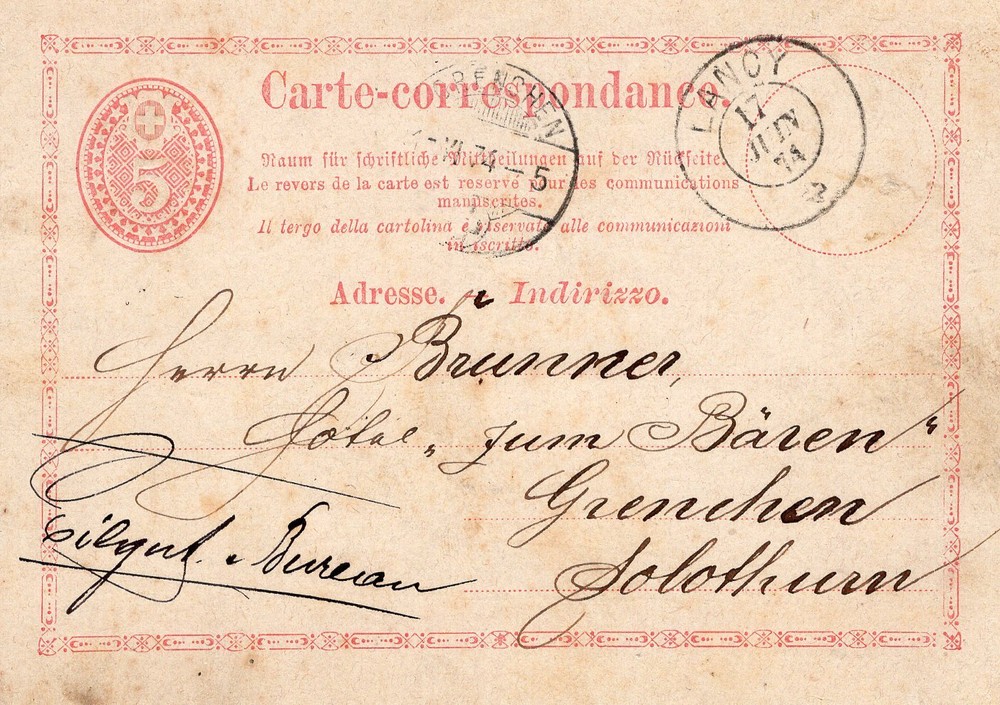 Carte-correspondance.
5
GRENCHEN
VI 74 - 5
LANCY
17
JUIN
74
2
Raum für schriftliche Mittheilungen auf der Rückseite.
Le revers de la carte est réservé pour les communications
manuscrites.
Il tergo della cartolina è riservato alle communicazioni
in iscritto.
Adresse. - Indirizzo.
Herrn Brunner,
Hôtel „zum Bären“
Grenchen
Solothurn
Eilgut. Bureau